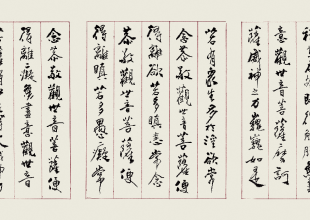 意觀世音菩薩摩訶
薩威神之力巍巍如是
若有眾生多於淫欲常
念恭敬觀世音菩薩便
得離欲若多瞋恚常念
恭敬觀世音菩薩便
得離瞋若多愚癡常
念恭敬觀世音菩薩便
得離癡無盡意觀世音